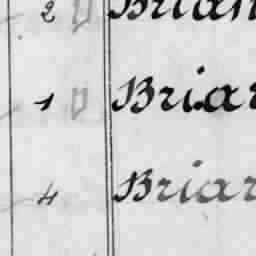 2 Brian
1 Briar
4 Briar